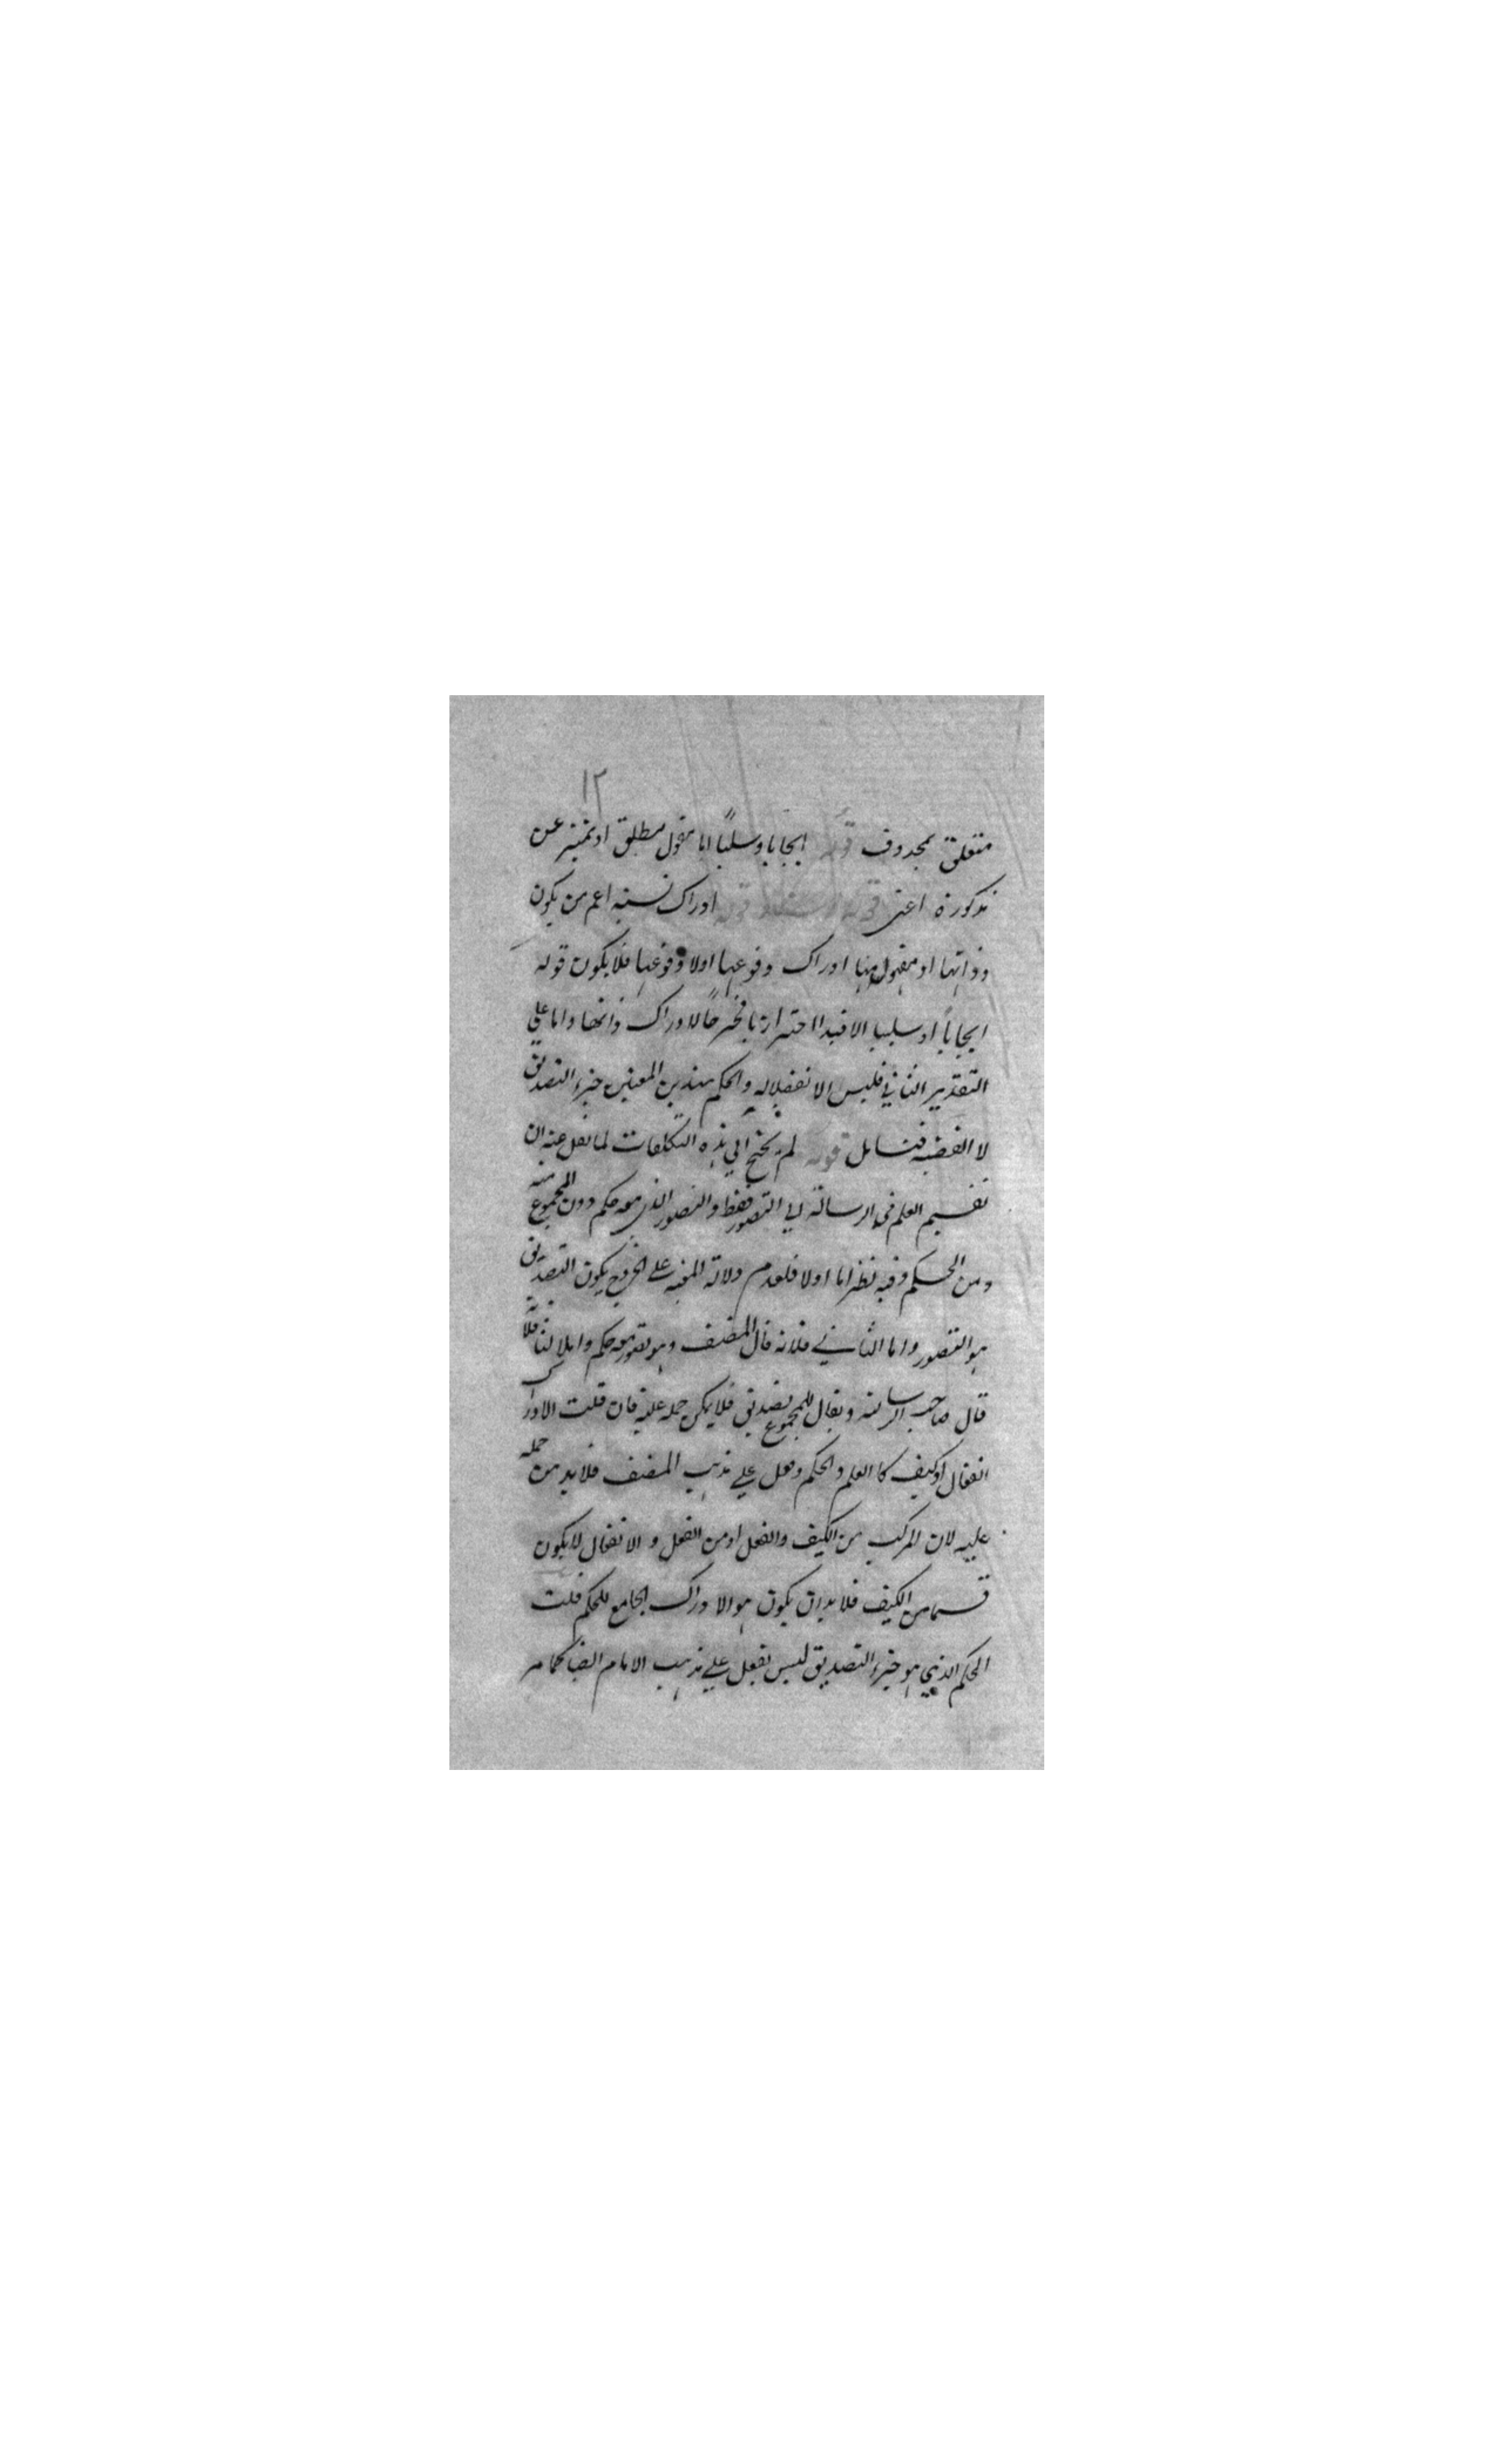 ١٢
متعلق بمحذوف قوله ايجابا وسلبًا اما مفعول مطلق او تميز عن
مذكورة اعنى قوله قوله ادراك نسبة اعم من يكون
وذاتها او مفهومها ادراك وقوعها اولا وقوعها فلا يكون قوله
ايجابًا او سلبيا الا قيدا احترازيا مخرجًا لادراك ذاتها واما على
التقدير الثاني فليس الا تفصلاله والحكم بهذين المعنين جزء التصديق
لا القضية فتامل قوله لم يحتج الي هذه التكلفات لما نقل عنه ان
تقسيم العلم في الرسالة الي التصور فقط والتصور الذي معه حكم دون المجموع منه
ومن الحكم وفيه نظر اما اولا فلعدم دلالة المعية على الخروج يكون التصديق
هو التصور واما الثاني فلانه قال المصنف وهو تصور معه حكم واما ثالثا فلانه
قال صاحب الرسالة ويقال للمجموع تصديق فلا يمكن حمله عليه فان قلت الادراك
انفعال او كيف كا العلم والحكم وفعل علي مذهب المصنف فلا بد من حمله
عليه لان المركب من الكيف والفعل او من الفعل و الانفعال لا يكون
قسما من الكيف فلا بد ان يكون هو الادراك الجامع للحكم قلت
الحكم الذي هو جزء التصديق ليس بفعل علي مذهب الامام ايضا كما مر